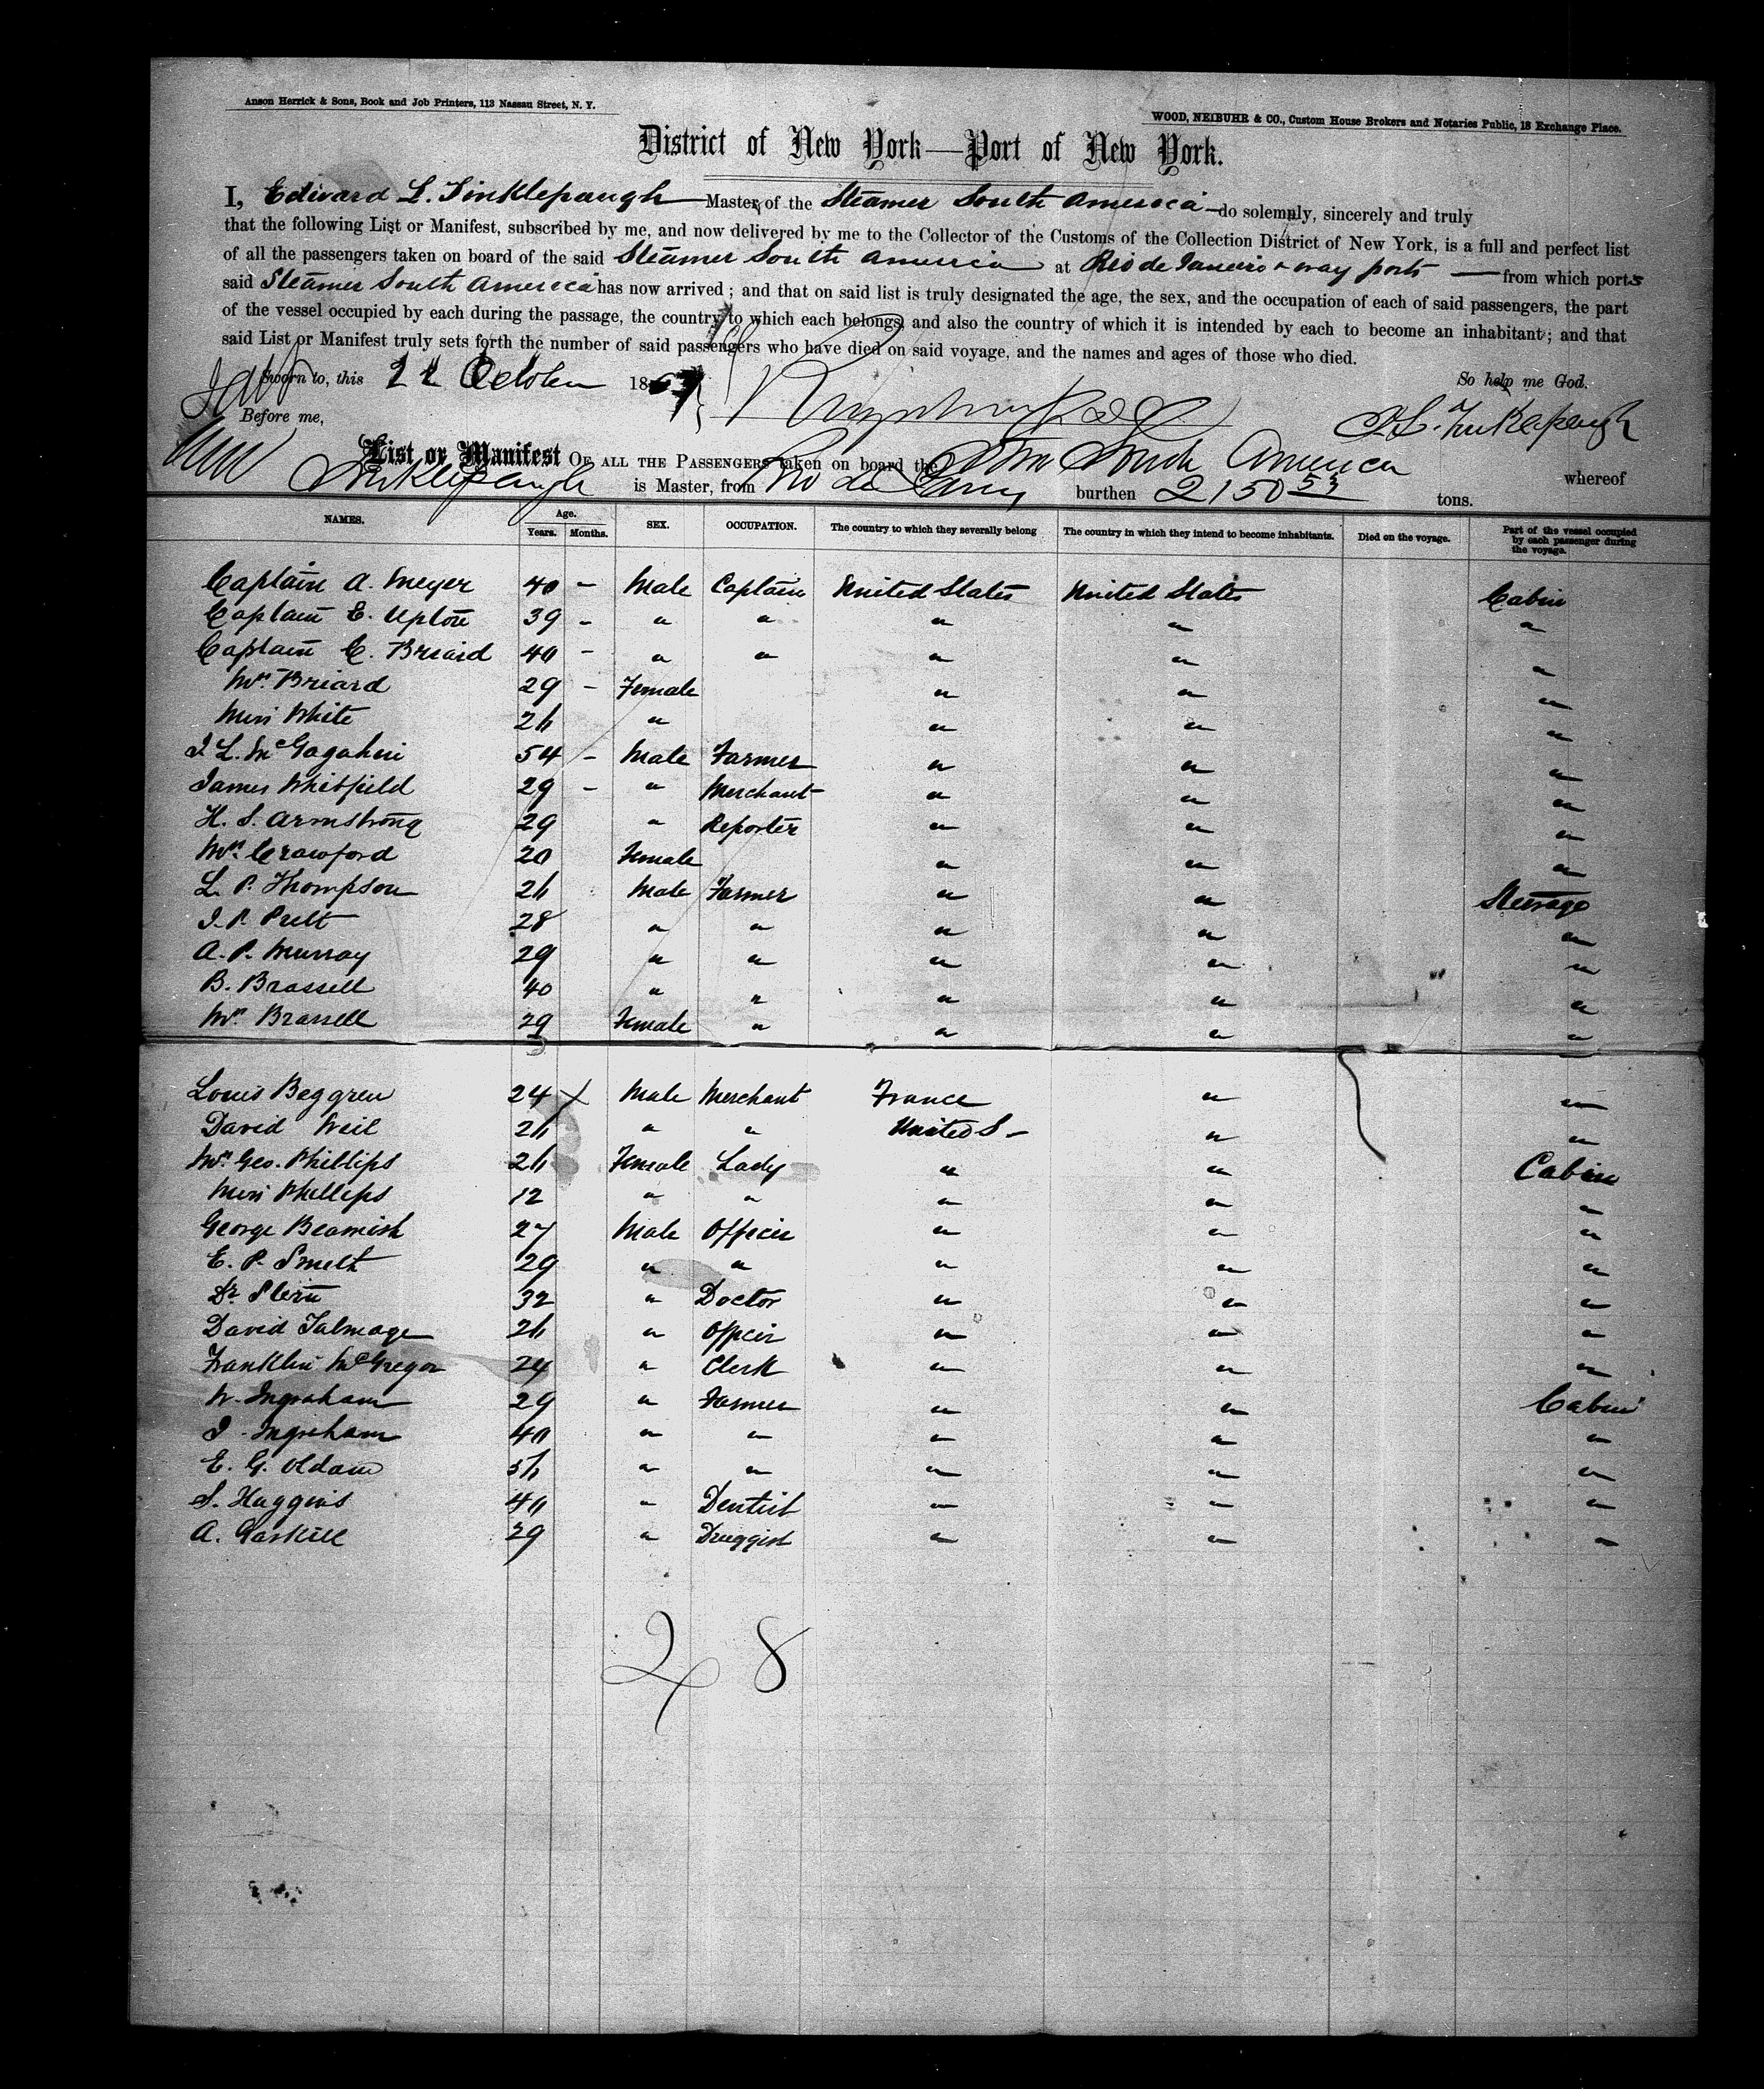 Anson Herrick & Sons, Book and Job Printers, 113 Nassau Street, N. Y.
WOOD, NEIBUHR & CO., Custom House Brokers and Notaries Public, 18 Exchange Place.
District of New York—Port of New York.
I, Edward L. Tinklepaugh Master of the Steamer South America do solemnly, sincerely and truly
that the following List or Manifest, subscribed by me, and now delivered by me to the Collector of the Customs of the Collection District of New York, is a full and perfect list
of all the passengers taken on board of the said Steamer South America at Rio de Janeiro & way ports — from which ports
said Steamer South America has now arrived; and that on said list is truly designated the age, the sex, and the occupation of each of said passengers, the part
of the vessel occupied by each during the passage, the country to which each belongs, and also the country of which it is intended by each to become an inhabitant; and that
said List or Manifest truly sets forth the number of said passengers who have died on said voyage, and the names and ages of those who died.
Sworn to, this 22 October 1867 So help me God.
Before me, E. L. Tinklepaugh
List or Manifest OF ALL THE PASSENGERS taken on board the Stm South America whereof
Tinklepaugh is Master, from Rio de Janeiro burthen 2150 53 tons.
NAMES. Age. Years. Months. SEX. OCCUPATION. The country to which they severally belong The country in which they intend to become inhabitants. Died on the voyage. Part of the vessel occupied by each passenger during the voyage.
Captain A. Meyer 40 - Male Captain United States United States Cabin
Captain E. Upton 39 - " " " " "
Captain C. Briard 40 - " " " " "
Mrs. Briard 29 - Female " " "
Miss White 26 " " " "
J. L. McGagahin 54 - Male Farmer " " "
James Whitfield 29 - " Merchant " " "
H. S. Armstrong 29 " Reporter " " "
Mrs. Crawford 20 Female " " "
L. P. Thompson 26 Male Farmer " " Steerage
J. P. Pelt 28 " " " " "
A. P. Murray 29 " " " " "
B. Brassell 40 " " " " "
Mrs. Brassell 29 Female " " " "
Louis Beggren 24 Male Merchant France " "
David Weil 26 " " United S - " "
Mrs. Geo. Phillips 26 Female Lady " " Cabin
Miss Phillips 12 " " " " "
George Beamish 27 Male Officer " " "
E. P. Smelt 29 " " " " "
Dr. Stern 32 " Doctor " " "
David Talmage 26 " Officer " " "
Franklin McGregor 24 " Clerk " " "
W. Ingraham 29 " Farmer " " Cabin
J. Ingraham 40 " " " " "
E. G. Oldam 56 " " " " "
S. Huggins 40 " Dentist " " "
A. Gaskill 29 " Druggist " " "
28